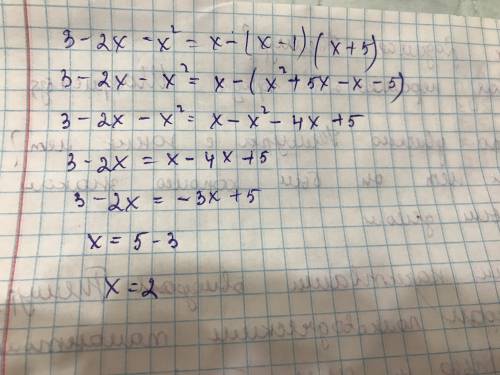 3 - 2x - x² = x - (x - 1)(x + 5)
3 - 2x - x² = x - (x² + 5x - x - 5)
3 - 2x - x² = x - x² - 4x + 5
3 - 2x = x - 4x + 5
3 - 2x = -3x + 5
x = 5 - 3
x = 2